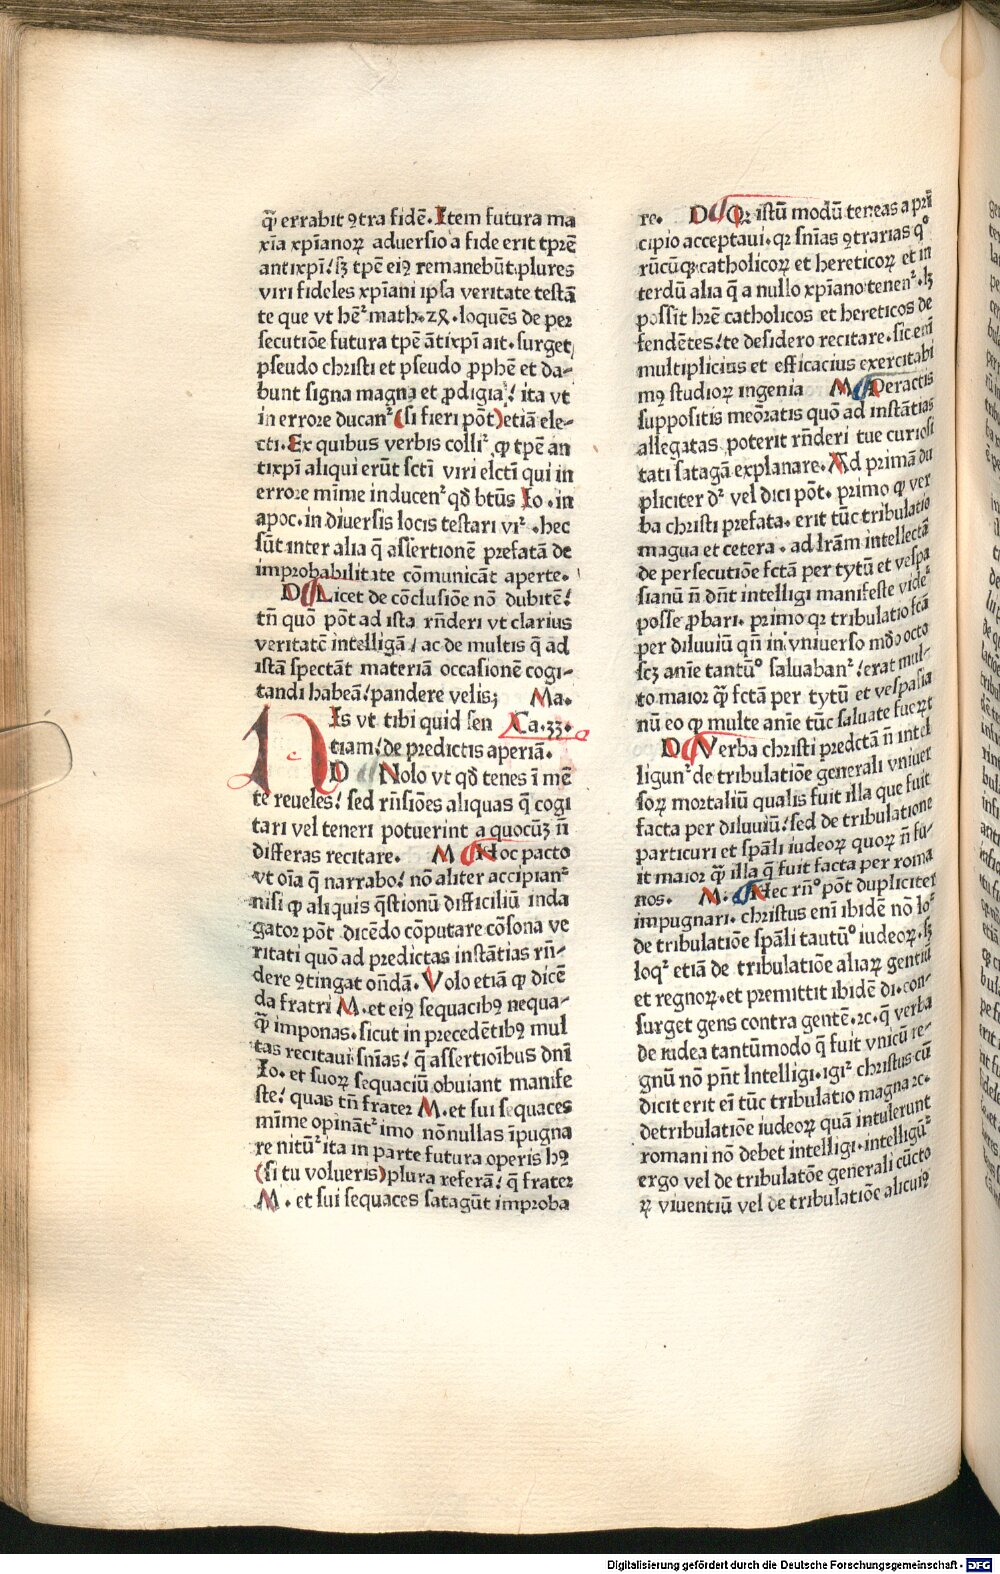 qꝫ̄ errabit ꝯtra fidē. Item futura ma
xīa xp̄ianoꝝ aduersio a fide erit tp̄re
antixp̄i! sꝫ tp̄e eiꝰ remanebūt plures
viri fideles xp̄iani ipsa veritate testā
te que vt hēt᷑ math. 24. loquēs de per
secutiōe futura tp̄e ātixp̄i ait. surgēt
pseudo christi et pseudo ꝓphē et da-
bunt signa magna et ꝓdigia! ita vt
in errorē ducan᷑ (si fieri pōt) etiā ele-
cti. Ex quibus verbis colli᷑ ꝙ tp̄e an
tixp̄i aliqui erūt sctī viri elctī qui in
errore mīme inducen᷑ qd̄ btūs Io. in
apoc. in diuersis locis testari vi᷑. hec
sūt inter alia q̄ assertionē prefatā de
improbabilitate cōmunicāt aperte.
D Licet de cōclusiōe nō dubitē!
tn̄ quō pōt ad ista rn̄deri vt clarius
veritatē intelligā / ac de multis q̄ ad
istā spectāt materiā occasionē cogi-
tandi habeā! pandere velis; Ma.
HIs vt tibi quid sen Ca. 33.
tiam! de predictis aperiā.
D Nolo vt qd̄ tenes ī mē
te reueles! sed rn̄siōes aliquas q̄ cogi
tari vel teneri potuerint a quocūꝫ n̄
differas recitare. M Hoc pacto
vt oīa q̄ narrabo! nō aliter accipian᷑
nisi ꝙ aliquis q̄stionū difficiliū inda
gator pōt dicēdo cōputare cōsona ve
ritati quō ad predictas instātias rn̄-
dere ꝯtingat on̄dā. Volo etiā ꝙ dicē
da fratri M. et eiꝰ sequacibꝰ nequa-
qꝫ̄ imponas. sicut in precedētibꝰ mul
tas recitaui sn̄ias! q̄ assertioībus dn̄i
Io. et suoꝝ sequaciū obuiant manife
ste! quas tn̄ frater M. et sui sequaces
mīme opināt᷑ imo nōnullas īpugna
re nitū᷑ ita in parte futura operis hꝰ
(si tu volueris) plura referā! q̄ frater
M. et sui sequaces satagūt improba
re. D Qꝛ istū modū teneas a prī
cipio acceptaui. qꝛ sn̄ias ꝯtrarias qͦ
rūcūqꝫ catholicoꝝ et hereticoꝝ et in
terdū alia q̄ a nullo xp̄iano tenen᷑. lꝫ
possīt hr̄e catholicos et hereticos de
fendētes! te desidero recitare. sic enī
multiplicius et efficacius exercitabi
mꝰ studioꝝ ingenia M Peractis
suppositis meōratis quō ad instātias
allegatas poterit rn̄deri tue curiosi
tati satagā explanare. Ad primā du
pliciter d᷑ vel dici pōt. primo ꝙ ver
ba christi prefata. erit tūc tribulatio
magna et cetera. ad lr̄am intellectā
de persecutiōe fctā per tytū et vespa
sianū n̄ dn̄t intelligi manifeste vide᷑
posse ꝓbari. primo qꝛ tribulatio fctā
per diluuiū qn̄ in vniuerso mō octo
scꝫ anīe tantūͦ saluaban᷑! erat mul-
to maior qꝫ̄ fctā per tytū et vespasia
nū eo ꝙ multe anīe tūc saluate fuer̄t
D Verba christi predctā n̄ intel
ligun᷑ de tribulatiōe generali vniuer
soꝝ mortaliū qualis fuit illa que fuit
facta per diluuiū! sed de tribulatione
particuri et spāli iudeoꝝ quoꝝ n̄ fu-
it maior qꝫ̄ illa q̄ fuit facta per roma
nos. M. Hec rn̄ͦ pōt dupliciter
impugnari. christus enī ibidē nō lo᷑
de tribulatiōe spāli tautūͦ iudeoꝝ. sꝫ
loq᷑ etiā de tribulatiōe aliaꝝ gentiū
et regnoꝝ. et premittit ibidē di. con-
surget gens contra gentē. ⁊c. q̄ verba
de iudea tantūmodo q̄ fuit vnicū re-
gnū nō pn̄t Intelligi. igi᷑ christus cū
dicit erit eī tūc tribulatio magna ⁊c.
detribulatiōe iudeoꝝ quā intulerunt
romani nō debet intelligi. intelligū᷑
ergo vel de tribulatōe generali cūcto
ꝝ viuentiū vel de tribulatiōe alicuiꝰ
Digitalisierung gefördert durch die Deutsche Forschungsgemeinschaft - DFG